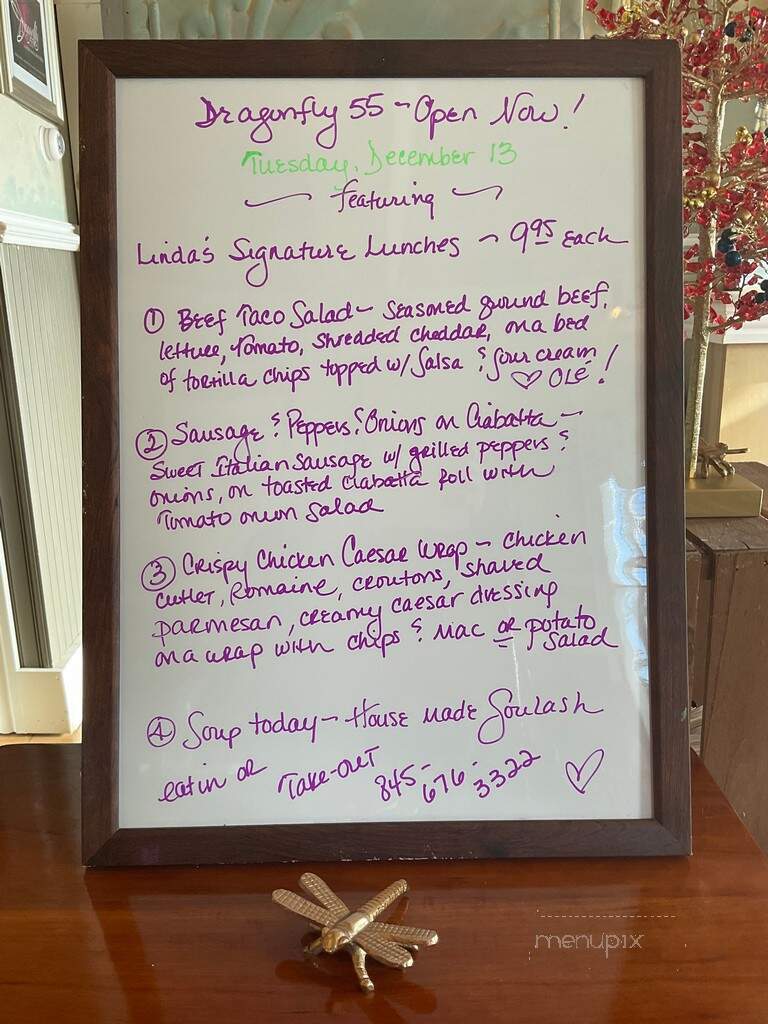 Dragonfly 55 - Open Now!
Tuesday, December 13
~ featuring ~
Linda's Signature Lunches ~ 9.95 each
① Beef Taco Salad - seasoned ground beef,
lettuce, tomato, shredded cheddar, on a bed
of tortilla chips topped w/ salsa & sour cream
♡ Olé!
② Sausage & Peppers & Onions on Ciabatta -
Sweet Italian sausage w/ grilled peppers &
onions, on toasted ciabatta roll with
Tomato onion salad
③ Crispy Chicken Caesar Wrap - chicken
cutlet, Romaine, croutons, shaved
parmesan, creamy caesar dressing
on a wrap with chips & mac or potato
salad
④ Soup today - House made Goulash
eat in or Take-out 845-676-3322 ♡
menupix